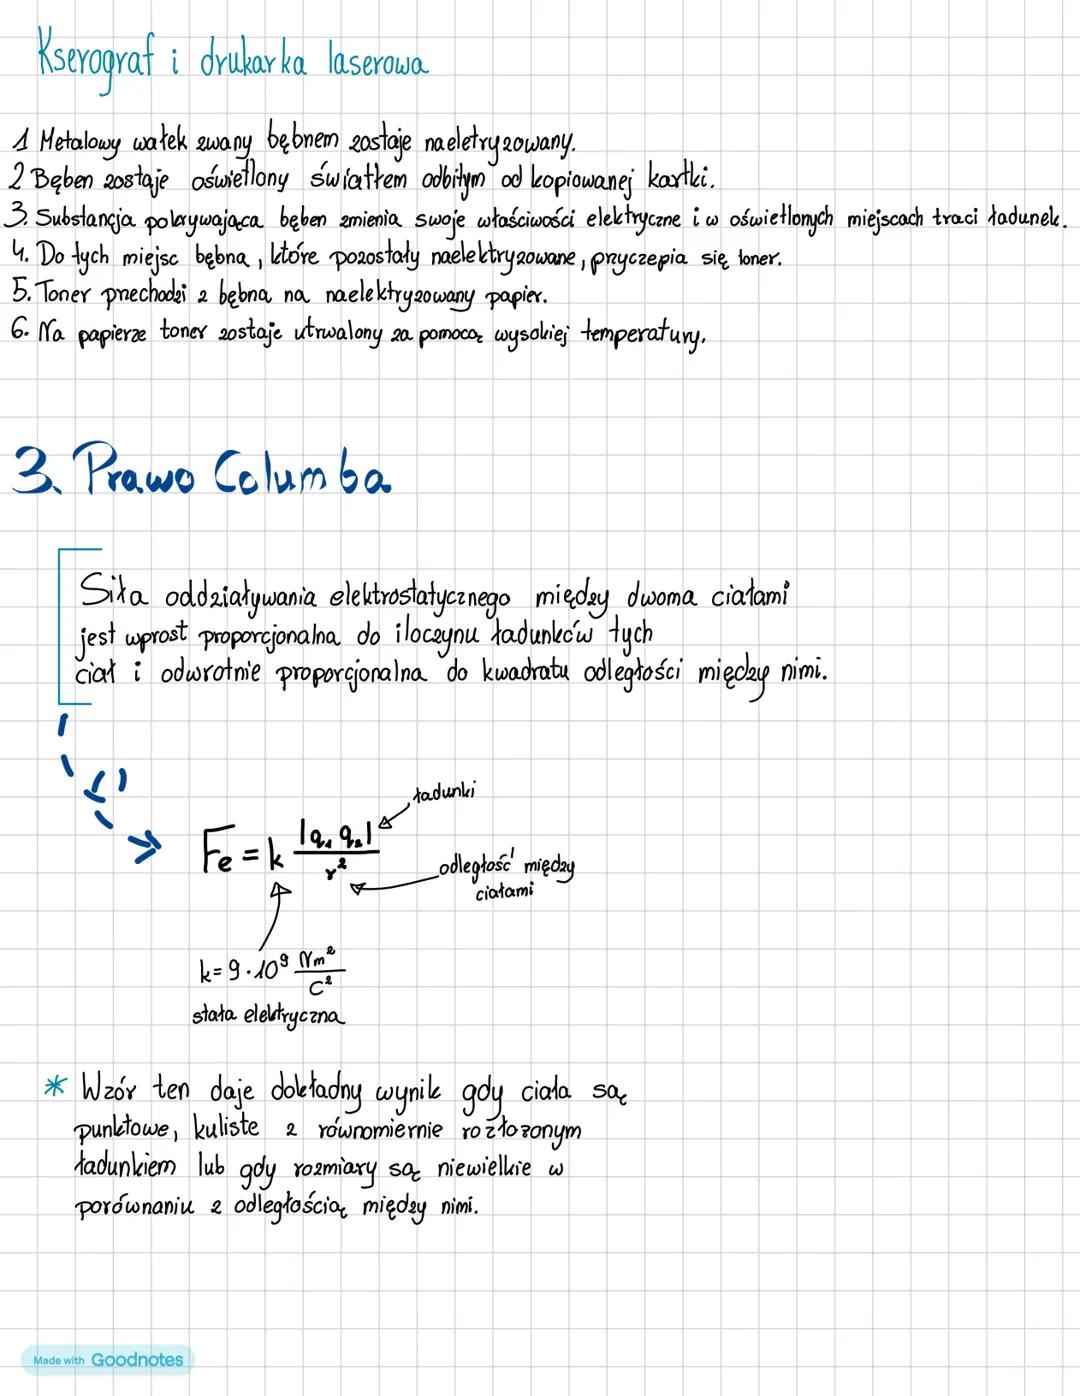 Kserograf i drukarka laserowa
1 Metalowy wałek zwany bębnem zostaje naeletryzowany.
2 Bęben zostaje oświetlony światłem odbitym od kopiowanej kartki.
3. Substancja pokrywająca bęben zmienia swoje właściwości elektryczne i w oświetlonych miejscach traci ładunek.
4. Do tych miejsc bębna, które pozostały naelektryzowane, przyczepia się toner.
5. Toner przechodzi z bębna na naelektryzowany papier.
6. Na papierze toner zostaje utrwalony za pomocą wysokiej temperatury.
3. Prawo Columba
Siła oddziaływania elektrostatycznego między dwoma ciałami
jest wprost proporcjonalna do iloczynu ładunków tych
ciał i odwrotnie proporcjonalna do kwadratu odległości między nimi.
ładunki
Fe = k |q₁ q₂| / r²
odległość między
ciałami
k = 9 · 10⁹ Nm² / C²
stała elektryczna
* Wzór ten daje dokładny wynik gdy ciała są
punktowe, kuliste z równomiernie rozłożonym
ładunkiem lub gdy rozmiary są niewielkie w
porównaniu z odległością między nimi.
Made with Goodnotes